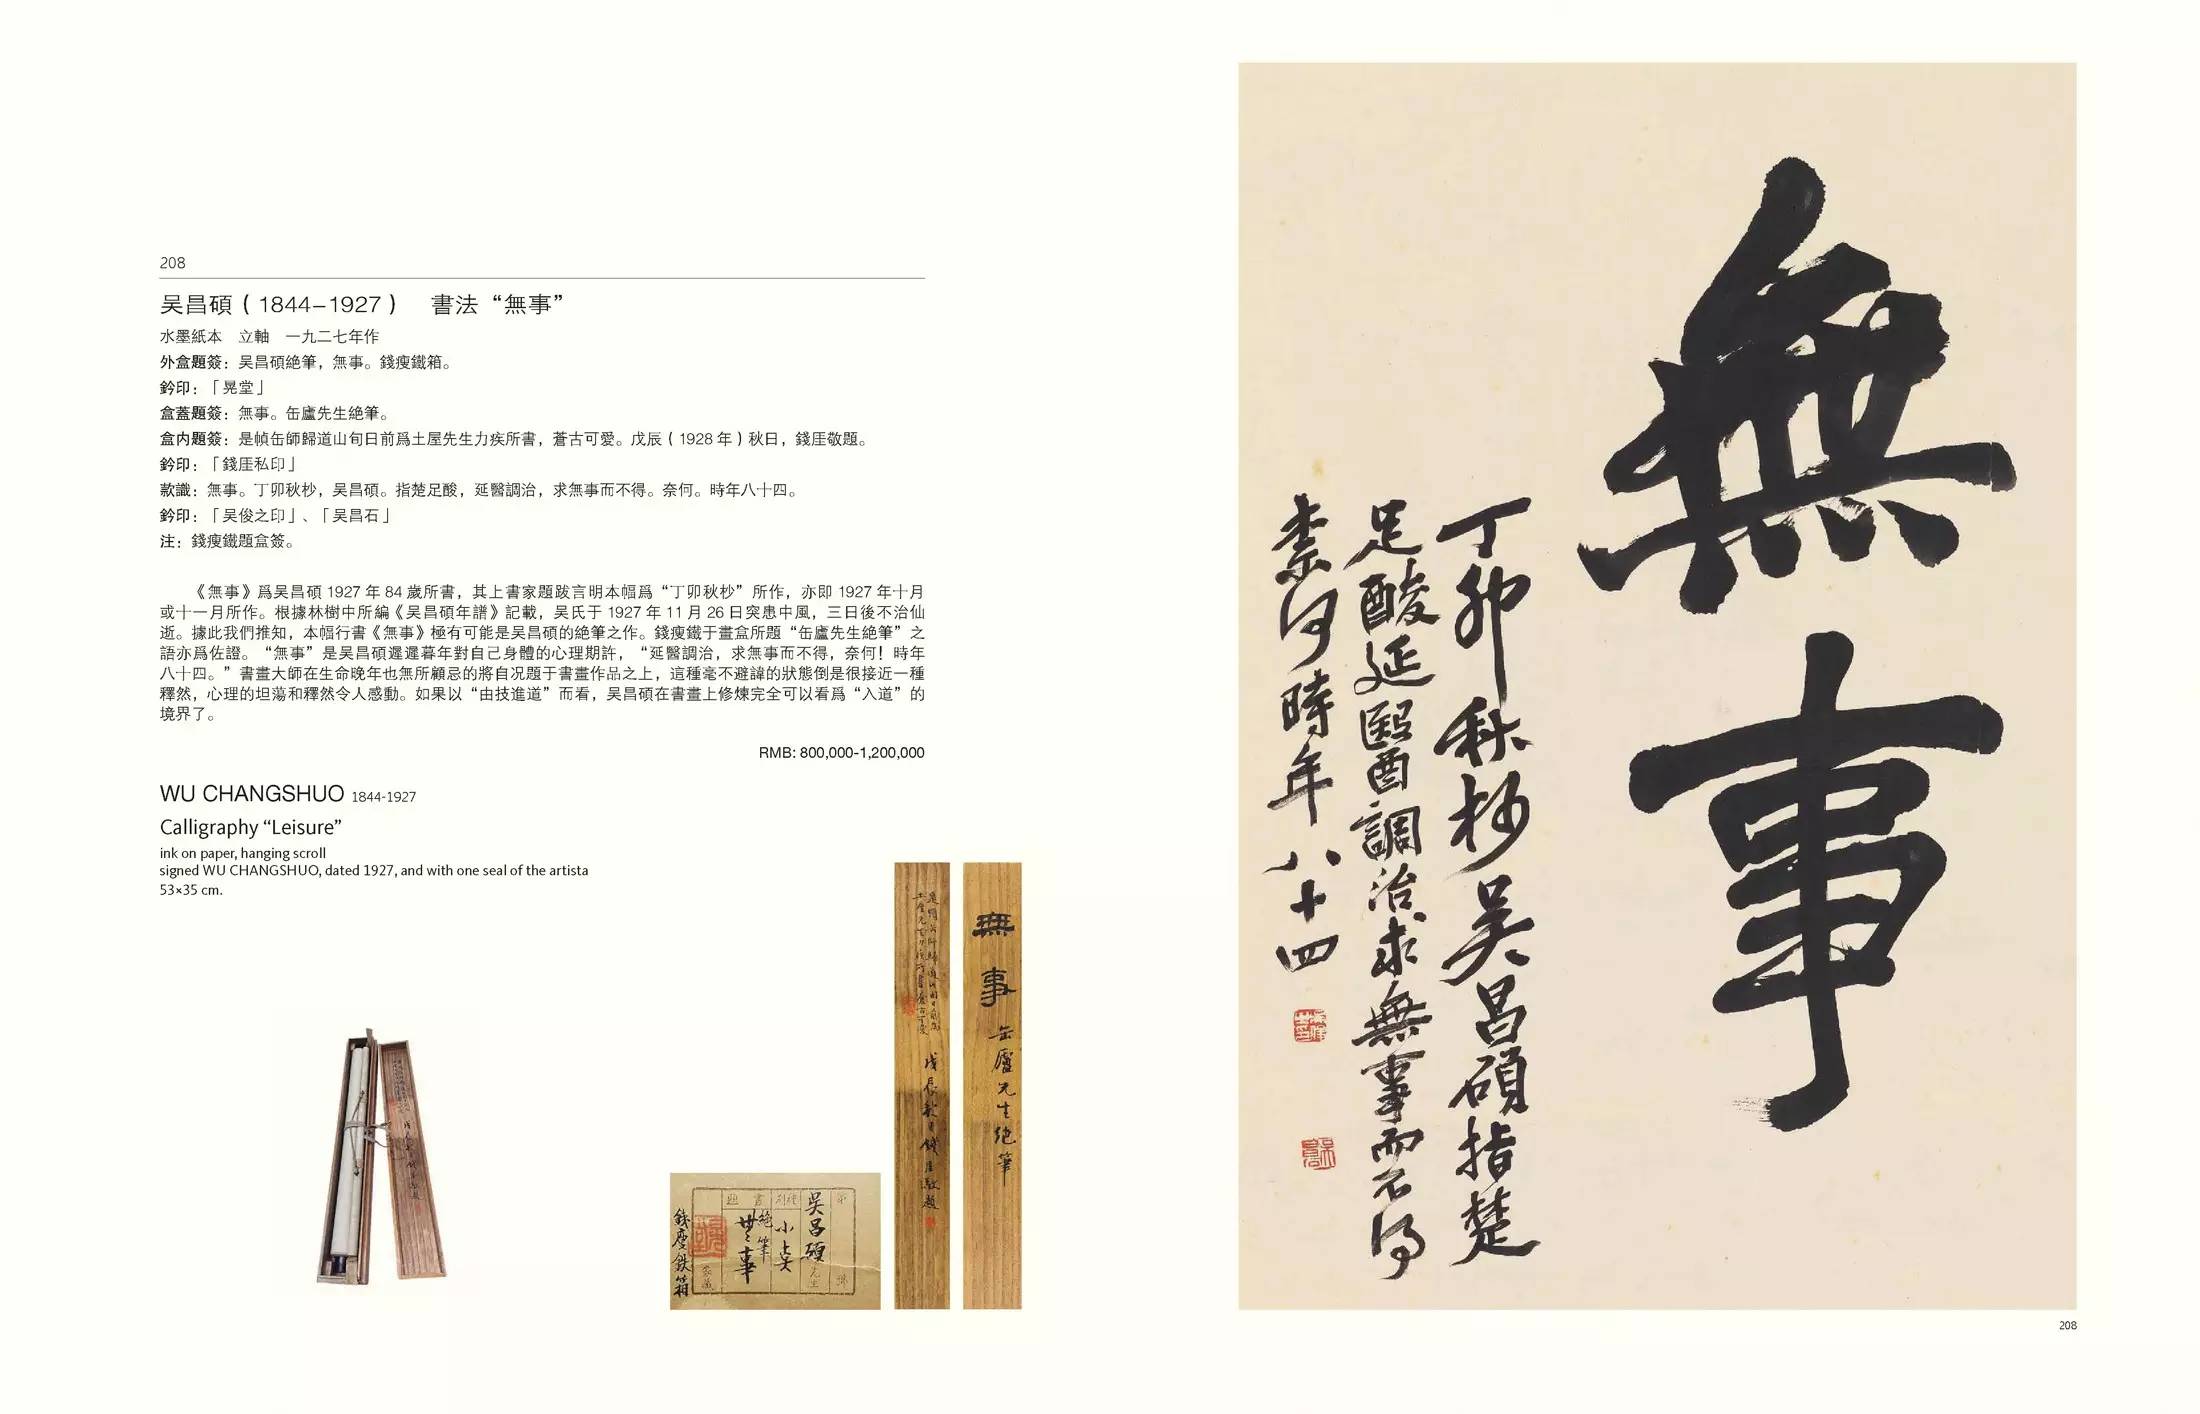 208
吴昌碩（1844–1927）　書法“無事”
水墨紙本　立軸　一九二七年作
外盒題簽：吴昌碩絶筆，無事。錢瘦鐵箱。
鈐印：「晃堂」
盒蓋題簽：無事。缶廬先生絶筆。
盒内題簽：是幀缶師歸道山旬日前爲土屋先生力疾所書，蒼古可愛。戊辰（1928 年）秋日，錢厓敬題。
鈐印：「錢厓私印」
款識：無事。丁卯秋杪，吴昌碩。指楚足酸，延醫調治，求無事而不得。奈何。時年八十四。
鈐印：「吴俊之印」、「吴昌石」
注：錢瘦鐵題盒簽。
《無事》爲吴昌碩 1927 年 84 歲所書，其上書家題跋言明本幅爲“丁卯秋杪”所作，亦即 1927 年十月
或十一月所作。根據林樹中所編《吴昌碩年譜》記載，吴氏于 1927 年 11 月 26 日突患中風，三日後不治仙
逝。據此我們推知，本幅行書《無事》極有可能是吴昌碩的絶筆之作。錢瘦鐵于畫盒所題“缶廬先生絶筆”之
語亦爲佐證。“無事”是吴昌碩遲遲暮年對自己身體的心理期許，“延醫調治，求無事而不得，奈何！時年
八十四。”書畫大師在生命晚年也無所顧忌的將自况題于書畫作品之上，這種毫不避諱的狀態倒是很接近一種
釋然，心理的坦蕩和釋然令人感動。如果以“由技進道”而看，吴昌碩在書畫上修煉完全可以看爲“入道”的
境界了。
RMB: 800,000-1,200,000
WU CHANGSHUO 1844-1927
Calligraphy “Leisure”
ink on paper, hanging scroll
signed WU CHANGSHUO, dated 1927, and with one seal of the artista
53×35 cm.
無事 缶廬先生絶筆
是幀缶師歸道山旬日前爲
土屋先生力疾所書蒼古可愛
戊辰秋日錢厓敬題
吳昌碩先生
小真
絶筆
無事
錢瘦鉄箱
無事
丁卯秋杪吳昌碩指楚
足酸延醫調治求無事而不得
柰何時年八十四
208